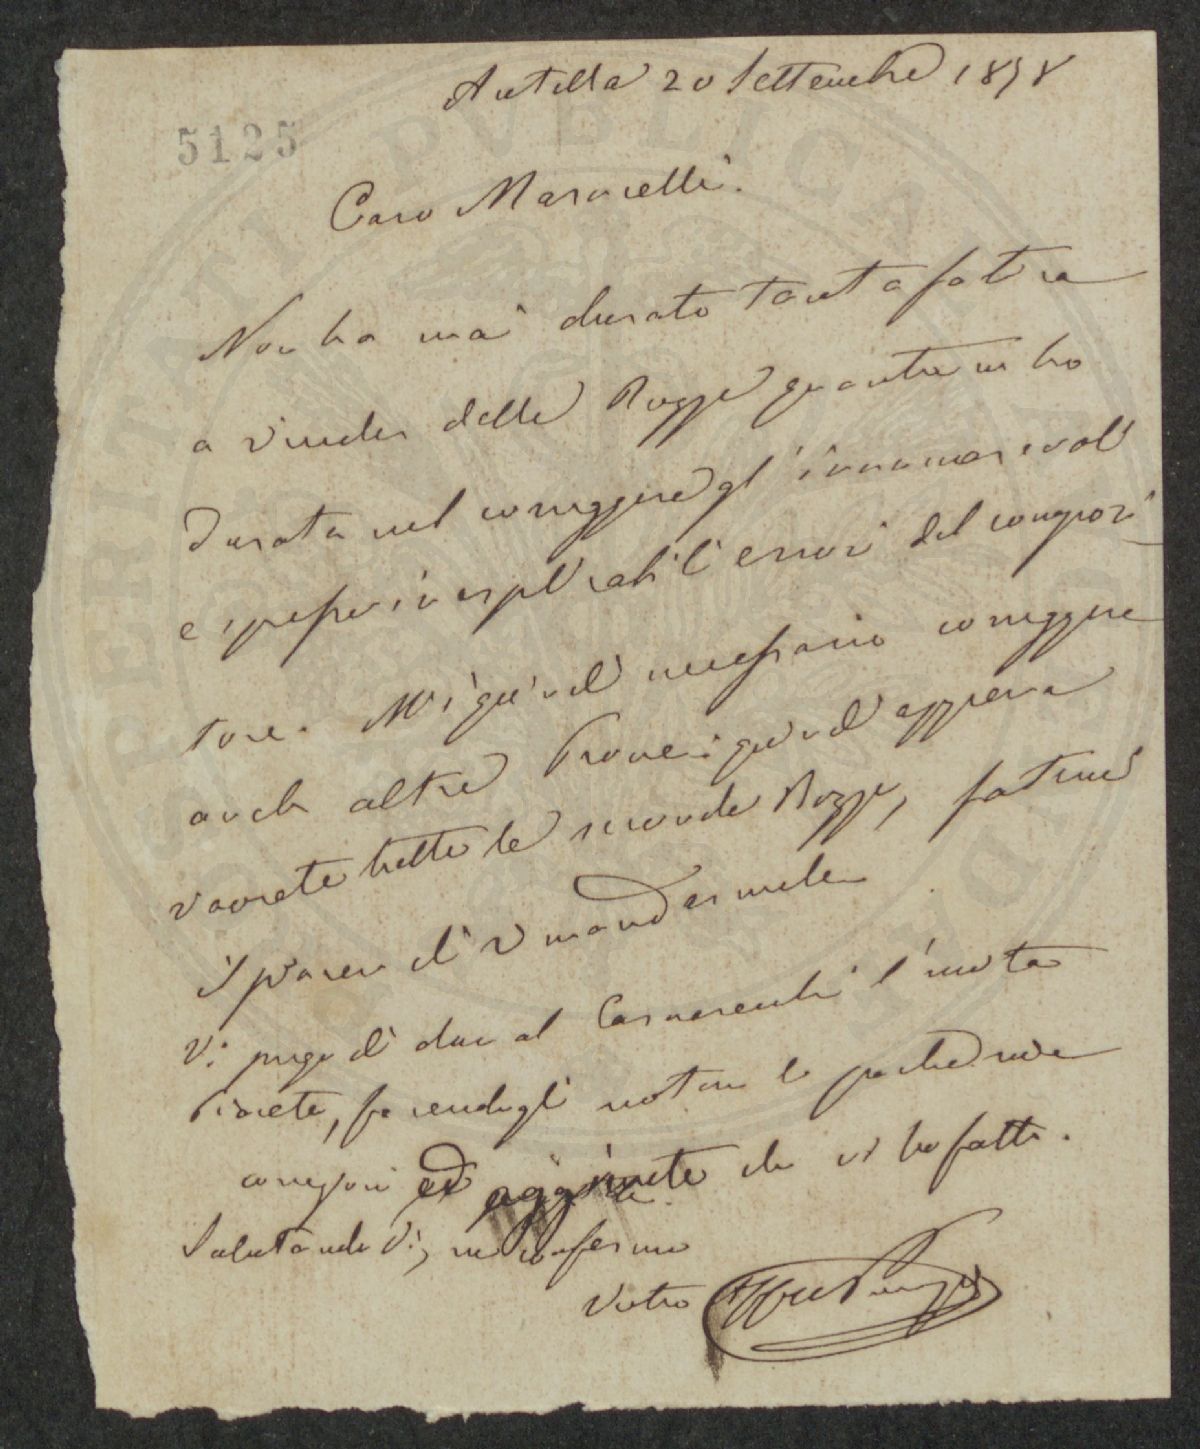 Antella 20 Settembre 1858
5125
Caro Maroncelli.
Non ho mai durato tanta fatica
a veder delle Bozze quanta ne ho
durata nel correggere gl'innumerevoli
e spesso inesplicabili errori del composi
tore. M'è quindi necessario correggere
anche altre Prove: quindi appena
vavrete tutte le seconde Bozze, fatemi
il piacer di rimandarmele
Vi prego di dare al Carnesecchi l'unita
, facendogli notare le poche mie
correzioni ed aggiunte che vi ho fatte.
Salutandovi, mi confermo
Vostro